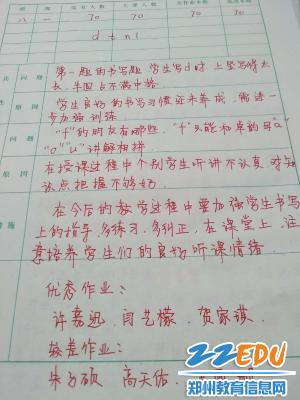 八一 70 70 70 70
d t n l
第一题的书写题 学生写d时 上竖写得太
长,半圆占不满中格
学生良好的书写习惯还未养成,需进一
步加强训练
"t"的朋友有哪些,"t"只能和单韵母"a"
"e""u"讲解相拼
在授课过程中个别学生听讲不认真 对知
识点把握不够好.
在今后的教学过程中要加强学生书写
上的指导,多练习,多纠正,在课堂上,注
意培养学生们的良好听课情绪.
优秀作业:
许嘉迅、闫艺檬、贺家祺.
较差作业:
朱子硕 高天佑、
22EDU
郑州教育信息网